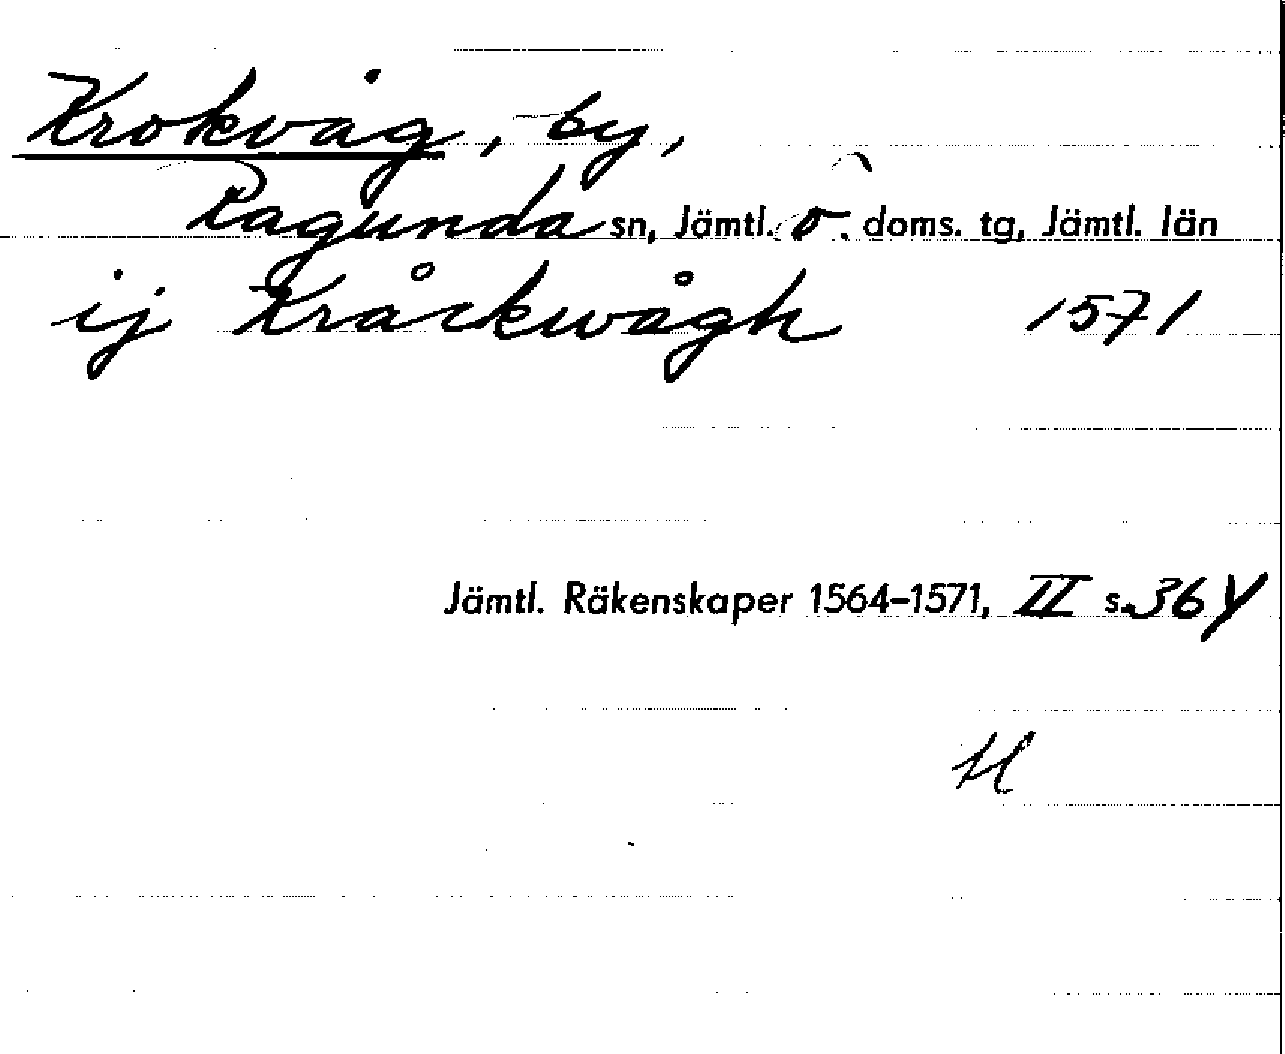 Krokvåg, by,
Ragunda sn, Jämtl. ö. doms. tg, Jämtl. län
ij Kråckwågh 1571
Jämtl. Räkenskaper 1564-1571, II s. 36